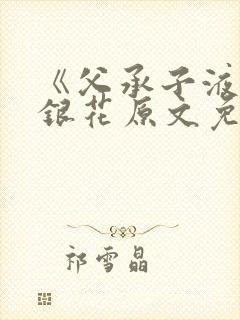 《父承子液
銀花原文免
祁雪晶